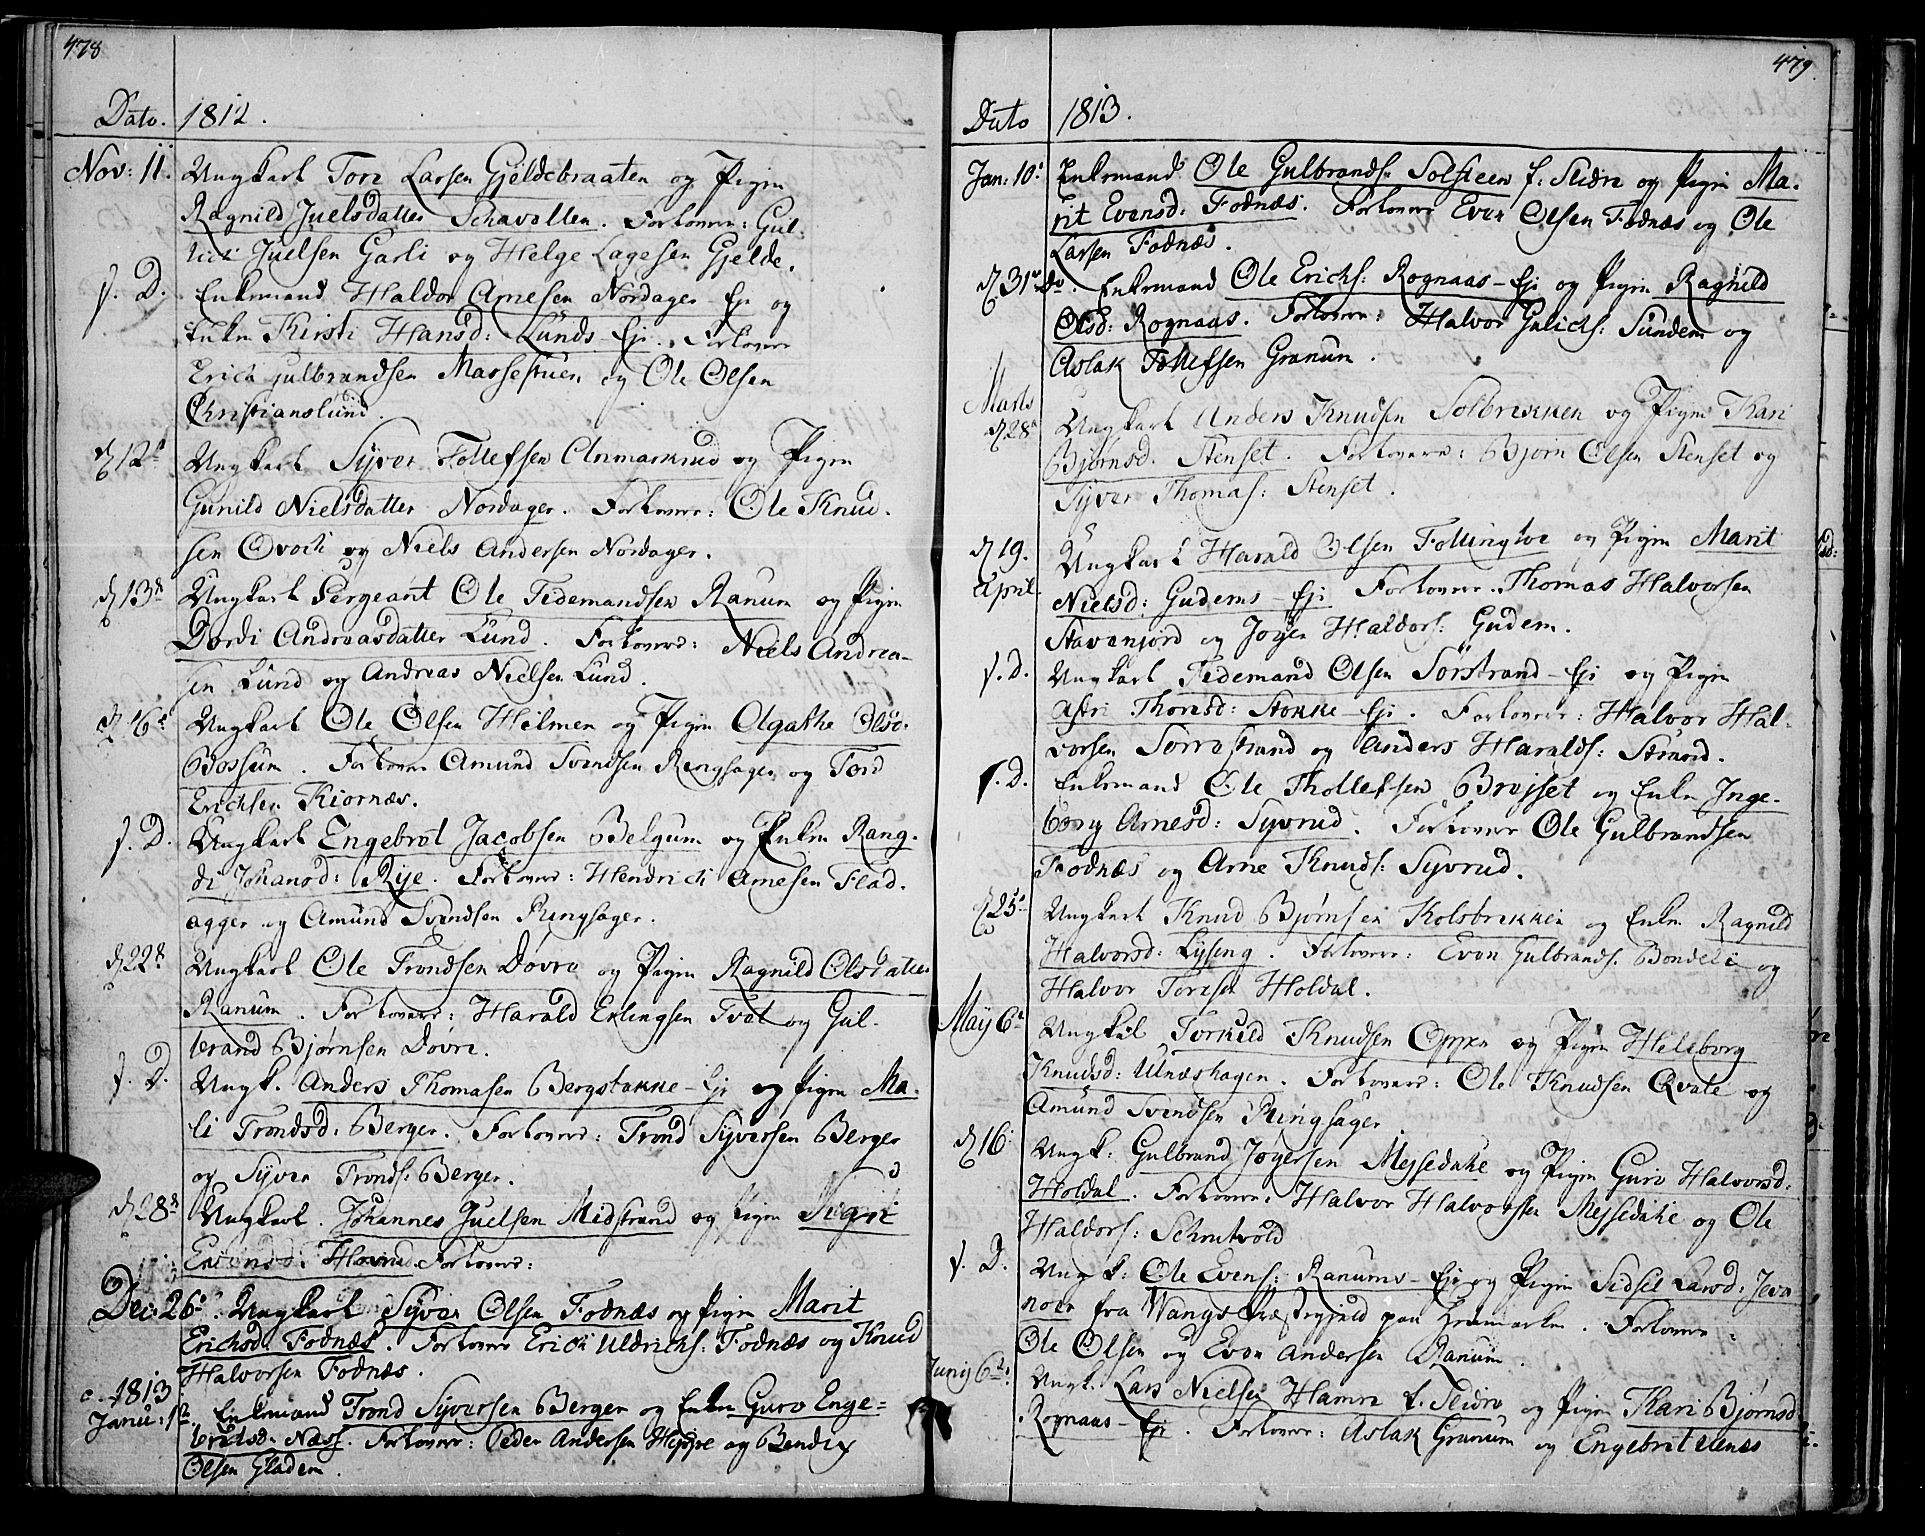 478
Dato. 1812.
Nov: 11. Ungkarl Tore Larsen Gjeldebraaten og Pigen
Ragnild Juelsdatter Schavollen. Forlovere: Gul-
lick Juelsen Garli og Helge Lagesen Gjelde.
s. D. Enkemand Haldor Arnesen Nordager - Ej og
Enken Kirsti Hansd: Lunds Ej. Forlovere
Erick Gulbrandsen Massestuen og Ole Olsen
Christianslund.
d 12te Ungkarl Syver Tollefsen Onmarkrud og Pigen
Gunild Nielsdatter Nordager. Forlovere: Ole Knud-
sen Qvoch og Niels Andersen Nordager.
d 13de Ungkarl Sergeant Ole Tedemandsen Ranum og Pigen
Dordi Andreasdatter Lund. Forlovere: Niels Andrea-
sen Lund og Andreas Nielsen Lund.
d 16de Ungkarl Ole Olsen Heimen og Pigen Olgathe Olsd.
Bossum. Forlovere Amund Svendsen Ringsager og Tord
Erichsen Kiornæs.
s. D. Ungkarl Engebret Jacobsen Belgum og Enken Rang-
di Johansd: Rye. Forlovere: Hendrich Arnesen Flad-
agger og Amund Svendsen Ringsager.
d 22de Ungkarl Ole Trondsen Døvre og Pigen Ragnild Olsdatter
Ranum. Forlovere: Harald Erlingsen Tvet og Gul-
brand Bjørnsen Døvre.
s. D. Ungk. Anders Thomasen Bergstakke - Ej og Pigen Ma-
li Trondsd: Berger. Forlovere: Trond Syversen Berger
og Syver Tronds: Berger.
d 28de Ungkarl. Johannes Juelsen Midstrand og Pigen Sigrit
Forlovere:
Dec: 26de. Ungkarl Syver Olsen Fodnæs og Pigen Marit
Erichsd. Fodnæs. Forlovere Erich Uldrichs: Fodnæs og Knud
Halvorsen Fodnæs.
1813
Janu: 1te. Enkemand Trond Syversen Berger og Enken Guro Enge-
bretsd. Næss. Forlovere: Peder Andersen Hippe og Bendix
Olsen Gladem.
479.
Dato 1813.
Jan: 10de Enkemand Ole Gulbrands: Solsteen f. Slidre og Pigen Ma-
rit Evensd: Fodnæs. Forlovere Even Olsen Fodnæs og Ole
Larsen Fodnæs.
d 31te do. Enkemand Ole Erichs: Rognaas - Ej og Pigen Ragnild
Olsd: Rognaas. Forlovere: Halvor Gulichs: Sundem og
Aslak Tollefsen Granum.
Marts
d 28de Ungkarl Anders Knudsen Solbrekken og Pigen Kari
Bjørnsd. Stenset. Forlovere: Bjørn Olsen Stenset og
Syver Thomas: Stenset.
d 19. Ungkarl Harald Olsen Follingloe og Pigen Marit
April. Nielsd: Gudems - Ej Forlovere. Thomas Halvorsen
Stavenjord og Joger Haldors: Gudem.
s. D. Ungkarl Tedemand Olsen Sørstrand - Ej og Pigen
Astri Thoresd: Stokke Ej. Forlovere: Halvor Hal-
vorsen Sørrestrand og Anders Haralds: Strand.
s. D. Enkemand Ole Thollefsen Brøjset og Enken Inge-
borg Arnesd: Syvrud. Forlovere Ole Gulbrandsen
Fodnæs og Arne Knuds: Syvrud.
d 25de Ungkarl Knud Bjørnsen Kolsbrekken og Enken Ragnild
Halvorsd: Lysing. Forlovere: Even Gulbrands. Bondelie og
Halvor Toresen Holdal.
Maij 6te Ungkarl Torkild Knudsen Oppen og Pigen Helleborg
Knudsd: Ulnæshagen. Forlovere: Ole Knudsen Qvale og
Amund Svendsen Ringsager.
d 16. Ungk: Gulbrand Jogersen Mejsedahe og Pigen Guro Halvorsd:
Holdal. Forlovere: Halvor Halvorsen Mejsedahe og Ole
Haldors: Schrutvold
s. D. Ungk: Ole Evens: Ranums - Ej og Pigen Sidsel Larsd: Jeva-
noer fra Wangs Præstegield paa Hedemarken. Forlovere:
Ole Olsen og Even Andersen Ranum.
Junij 6te. Ungk. Lars Nielsen Hamre f. Slidre og Pigen Kari Bjørnsd
Rognaas - Ej. Forlovere: Aslak Granum og Engebret Ulnæs